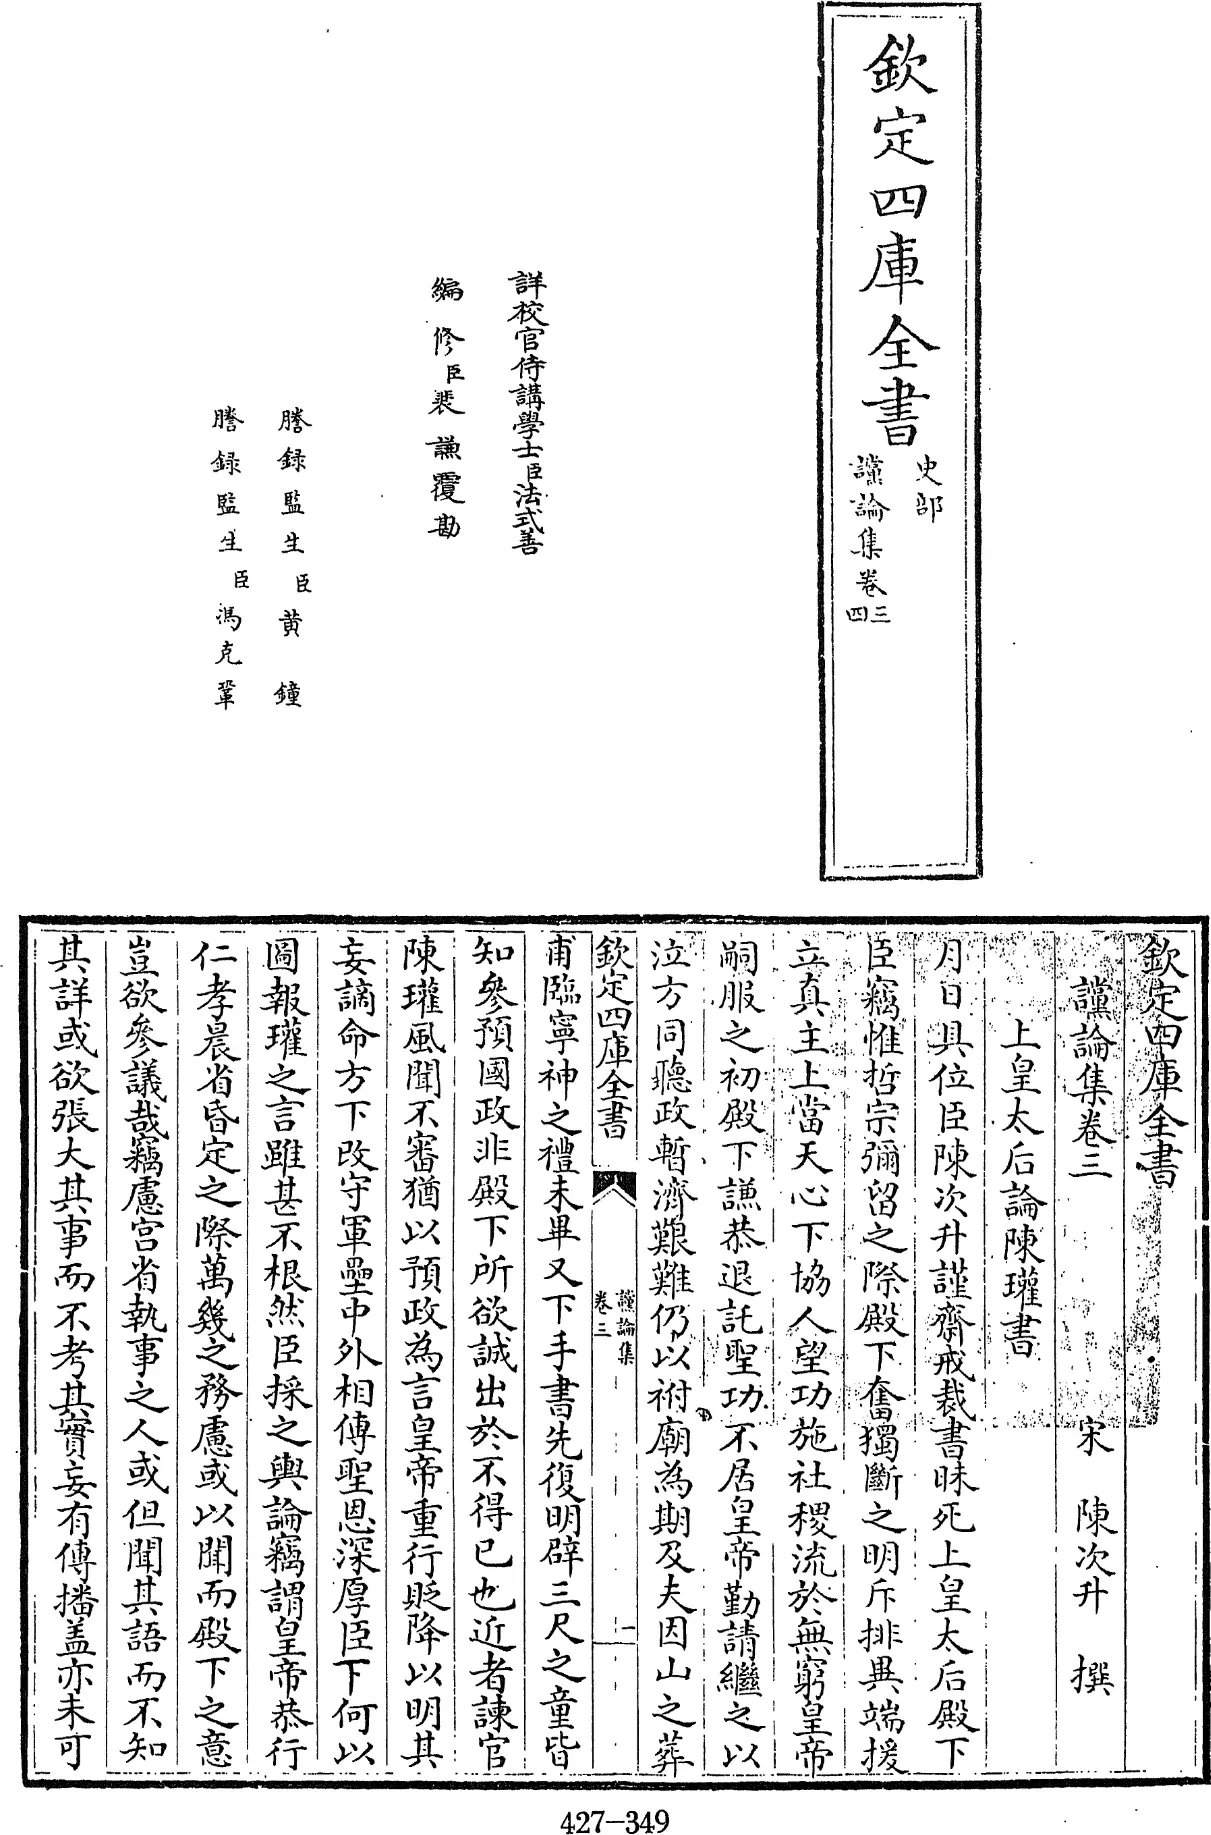 欽定四庫全書
史部
讜論集卷三
四
詳校官侍講學士臣法式善
編修臣裴謙覆勘
謄録監生臣黄鐘
謄録監生臣馮克鞏
欽定四庫全書
讜論集卷三
宋 陳次升 撰
上皇太后論陳瓘書
月日具位臣陳次升謹齋戒裁書昧死上皇太后殿下
臣竊惟哲宗彌留之際殿下奮獨斷之明斥排異端援
立真主上當天心下協人望功施社稷流於無窮皇帝
嗣服之初殿下謙恭退託聖功不居皇帝勤請繼之以
泣方同聽政暫濟艱難仍以祔廟為期及夫因山之葬
欽定四庫全書
讜論集
卷三
一
甫臨寧神之禮未畢又下手書先復明辟三尺之童皆
知參預國政非殿下所欲誠出於不得已也近者諫官
陳瓘風聞不審猶以預政為言皇帝重行貶降以明其
妄謫命方下改守軍壘中外相傳聖恩深厚臣下何以
圖報瓘之言雖甚不根然臣採之輿論竊謂皇帝恭行
仁孝晨省昏定之際萬幾之務慮或以聞而殿下之意
豈欲參議哉竊慮宫省執事之人或但聞其語而不知
其詳或欲張大其事而不考其實妄有傳播盖亦未可
427-349